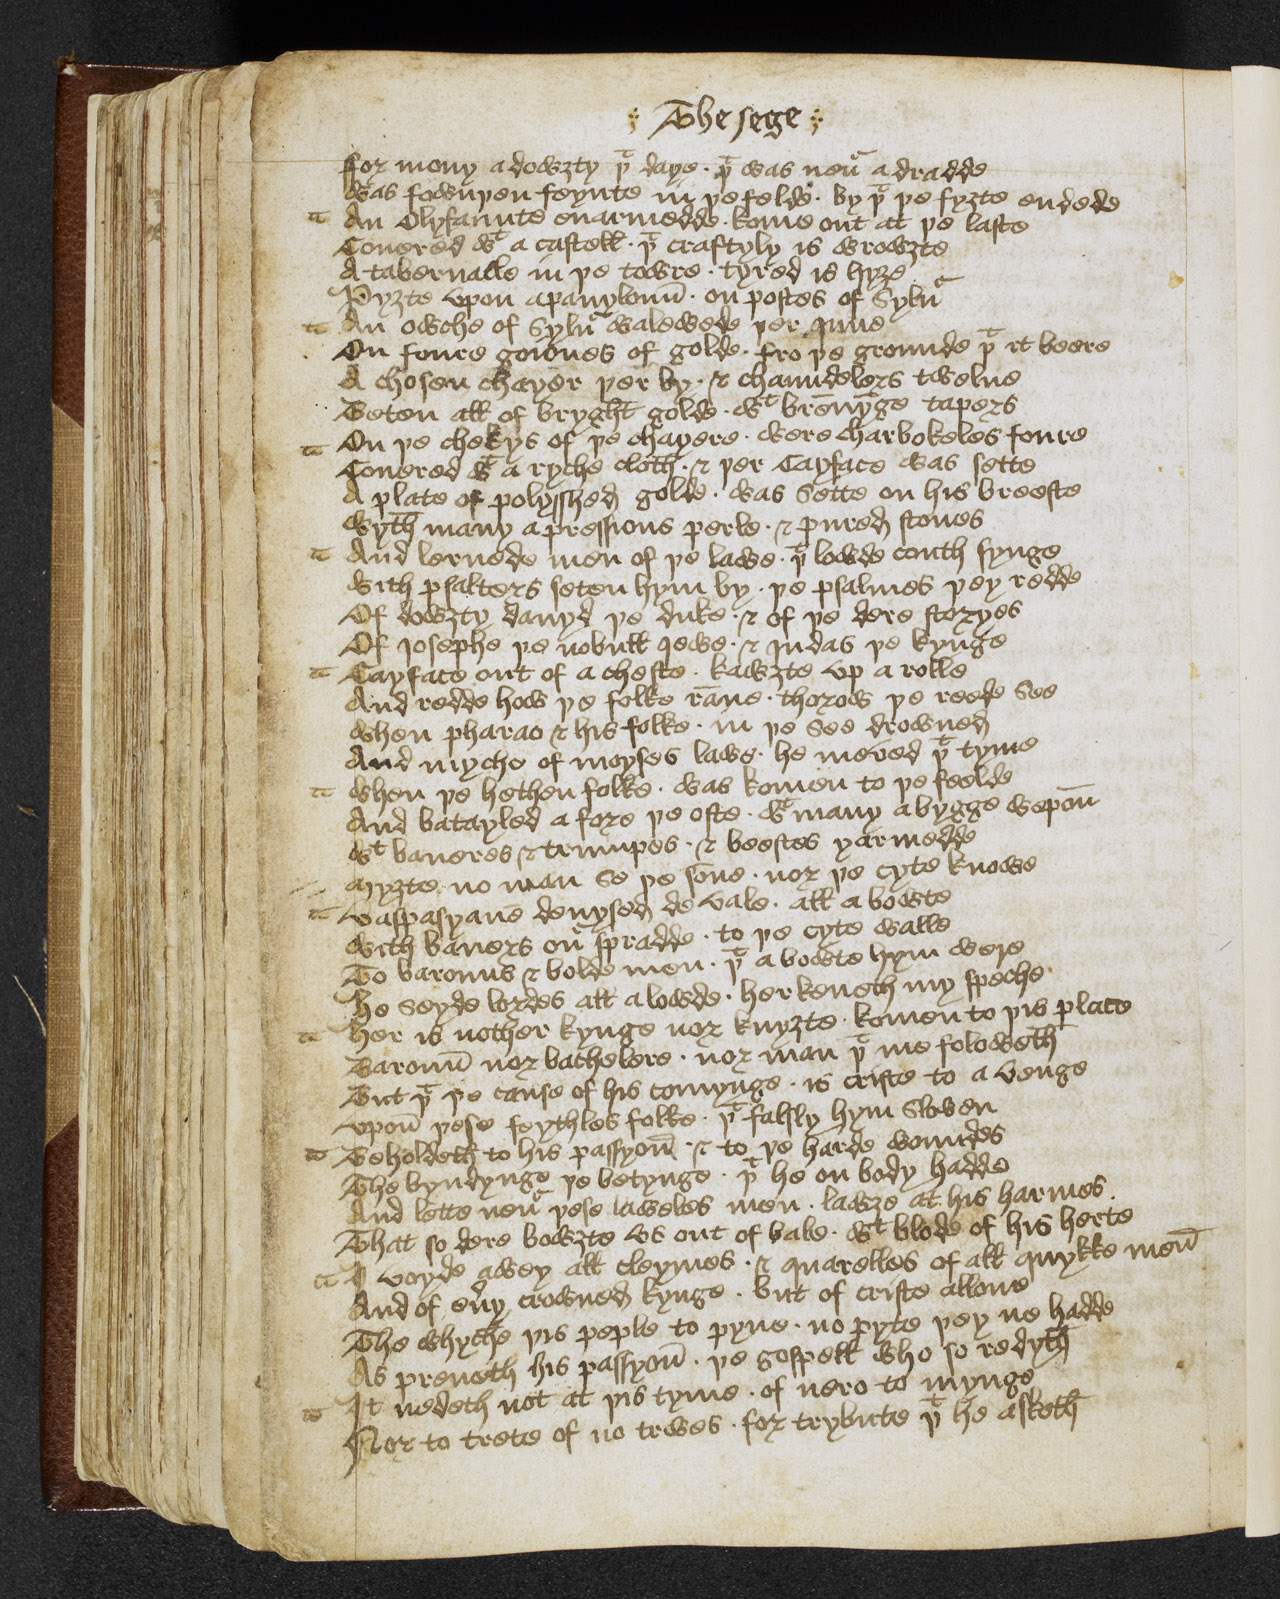 The sege
For mony a dowȝty þͭ daye · þͭ was neuͬ a dradde
Was fownþen feynte in þe felde · by þͭ þe fyȝte endede
An Olyfaunte enarmedde · kome out at þe laste
Couered wͭ a castell · þͭ craftyly is wrowȝte
A tabernalle in þe towre · tyred is hyȝe
Pyȝte vpon a panylonn̄ · on postes of Syluͬ
An owche of Syluͬ walewede þer Inne
On foure goiones of golde · fro þe grounde þͭ it beere
A chosen chayer þer by · & chaundelers twelue
Beten all of bryght golde · wͭ brēnȳge tapers
On þe chekys of þe chayere · were charbokeles foure
Couered wͭ a ryche cloth · & þer Cayface was sette
A plate of polysshed golde · was Sette on his breeste
Wyth many a pressious perle · & pured stones
And lernede men of þe lawe · þͭ lowde couth synge
With psalters seten hym by · þe psalmes þey redde
Of dowȝty dauyd þe duke · & of þe dere storyes
Of Iosephe þe nobull Iewe · & Iudas þe kynge
Cayface out of a cheste · kawȝte vp a rolle
And redde how þe folke rāne · thorow þe reede See
When pharao & his folke · in þe See drowned
And myche of moyses lawe · he meved þͭ tyme
When þe hethen folke · was komen to þe feelde
And batayled a fore þe oste · wͭ many a bygge wepon̄
Wͭ baneres & trumpes · & beestes yarmedde
Myȝte no man Se þe sone · nor þe cyte knowe
Vaspasyane deuysed de vale · all a bowte
With baners ouͬ spradde · to þe cyte walle
To barouns & bolde men · þͭ a bowte hym were
He seyde lordes all a lowde · herkeneth my speche
Her is nother kynge nor knyȝte · komen to þis place
Baroun̄ nor bachelere · nor man þͭ me foloweth
But þͭ þe cause of his comynge · is criste to a venge
Vpon̄ þese feythles folke · þͭ falsly hym Sloven
Beholdeth to his passyon̄ · & to þe harde woundes
The byndynge þe betynge · þͭ he on body hadde
And lette neuͬ þese laweles men · lawȝe at his harmes
That so dere bowȝte vs out of bale · wͭ blode of his herte
I voyde awey all cleymes · & quarelles of all quykke men̄
And of eu̓y crowned kynge · but of criste allone
The whyche þis peple to pyne · no pyte þey ne hadde
As preueth his passyon̄ · þe gospell who so redyth
It nedeth not at þis tyme · of nero to mynge
Nor to trete of no trewes · for trybute þͭ he asketh